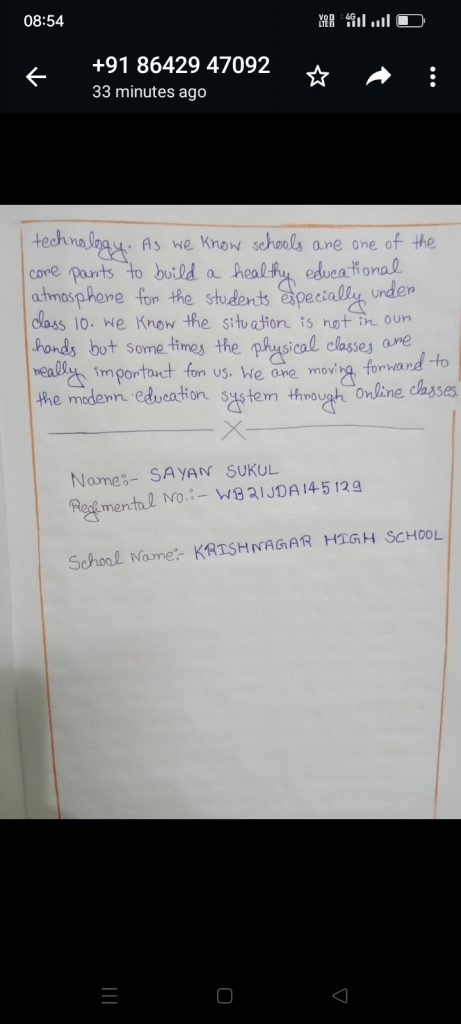 08:54
VoD LTE 4G
+91 86429 47092
33 minutes ago
technology. As we know schools are one of the
core parts to build a healthy educational
atmosphere for the students especially under
class 10. We know the situation is not in our
hands but sometimes the physical classes are
really important for us. We are moving forward to
the modern education system through online classes.
X
Name:- SAYAN SUKUL
Regimental No.:- WB21JDA145129
School Name:- KRISHNAGAR HIGH SCHOOL